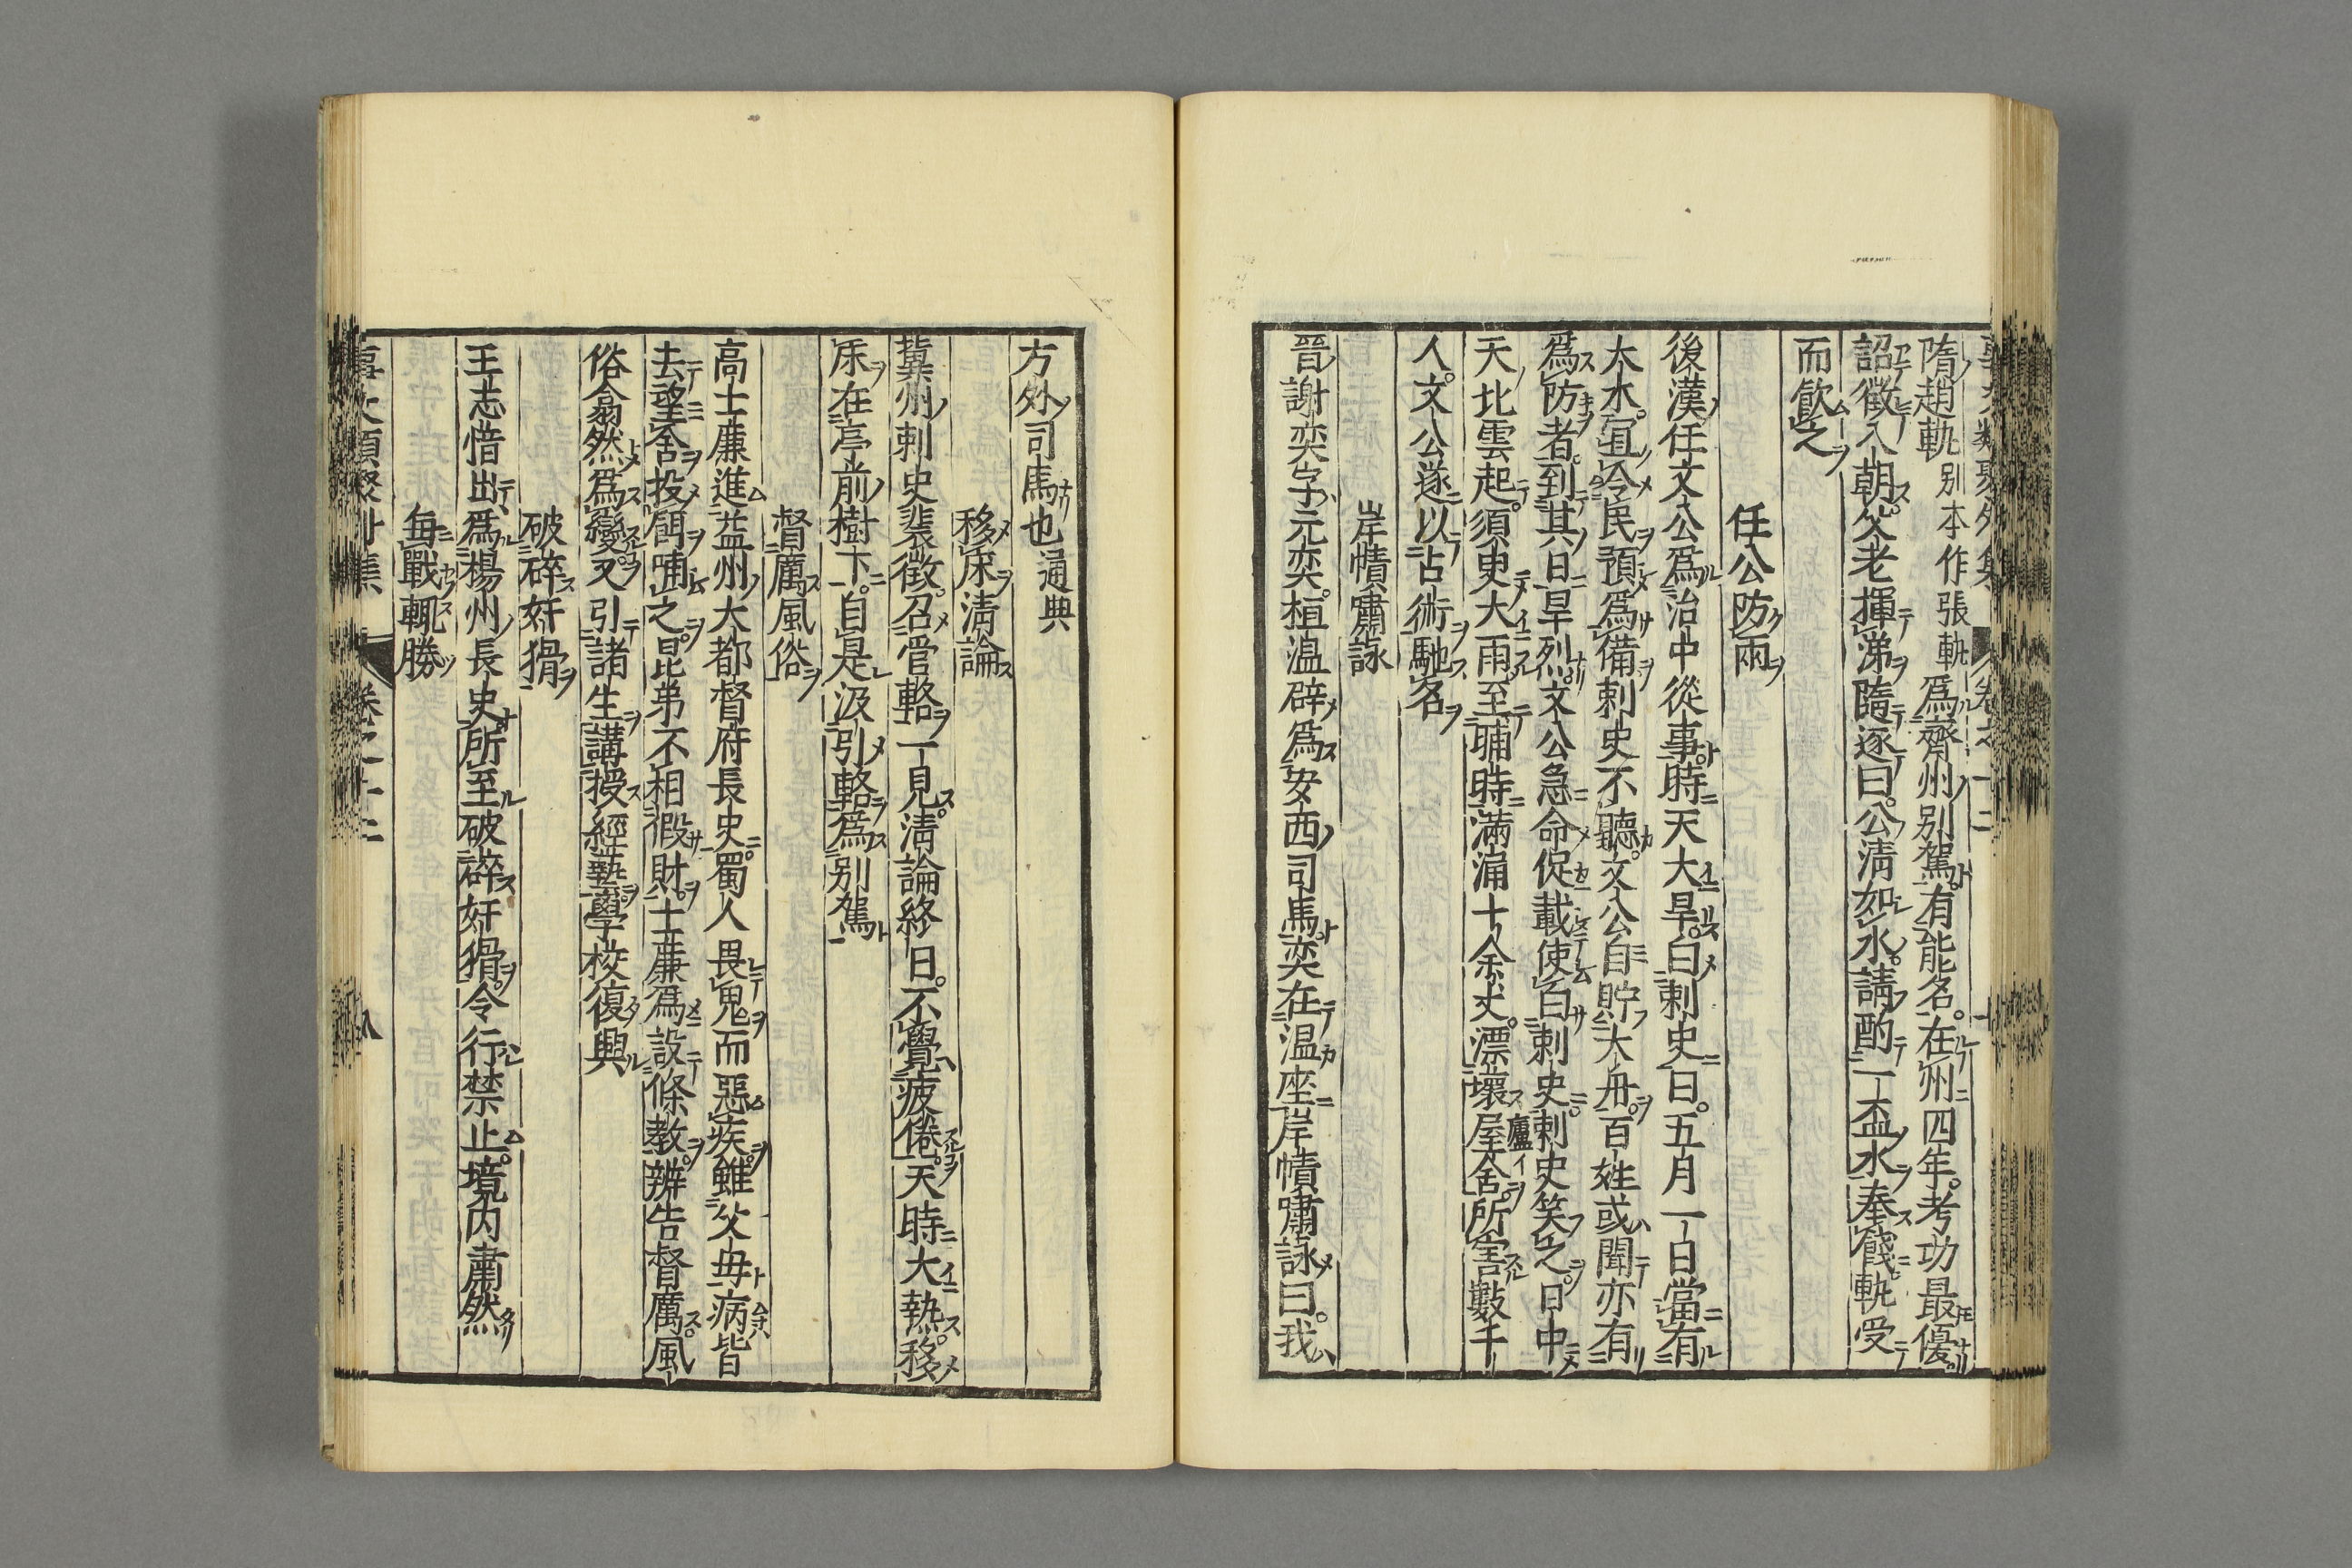 隋趙軌別本作張軌爲齊州別駕有能名在州四年考功最優
詔徵入朝父老揮涕隨逐曰公清如水請酌一盃水奉餞軌受
而飮之
任公防雨
後漢任文公爲治中從事時天大旱白刺史曰五月一日當有
大水宜令民預爲備刺史不聽文公自貯大舟百姓或聞亦有
爲防者到其日旱烈文公急命促載使白刺史刺史笑之日中
天北雲起須臾大雨至晡時湧漏十余丈漂壞屋舍所害數千
人文公遂以占術馳名
岸幘嘯詠
晉謝奕字元奕桓温辟爲安西司馬奕在温座岸幘嘯詠曰我
方外司馬也通典
移床清論
冀州刺史裴徽召管輅一見清論終日不覺疲倦天時大熱移
床在亭前樹下自是汲引輅爲別駕
督厲風俗
高士廉進益州大都督府長史蜀人畏鬼而惡疾雖父毋病皆
去望舍投餌哺之昆弟不相假財士廉爲設條教辨告督厲風
俗翕然爲變又引諸生講授經藝學校復興
破碎奸猾
王志愔出爲楊州長史所至破碎奸猾令行禁止境内肅然
每戰輒勝
事文類聚外集 卷之十二 八